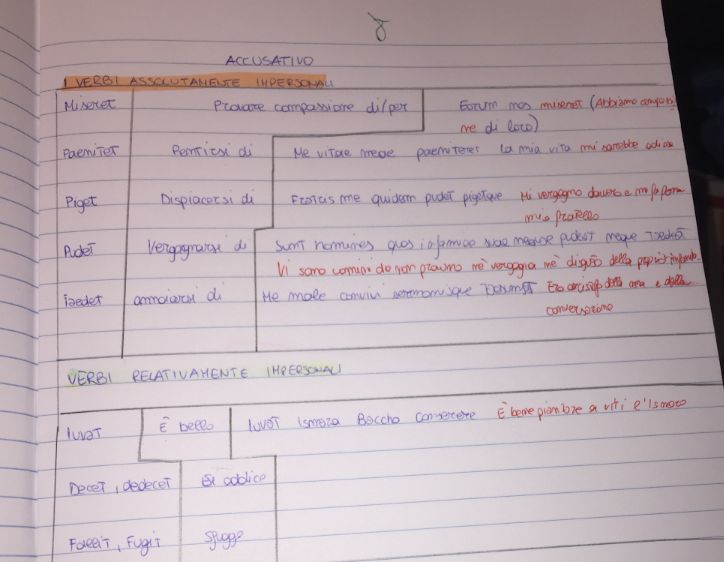 8
ACCUSATIVO
I VERBI ASSOLUTAMENTE IMPERSONALI
Miseret Provare compassione di/per Eorum nos miseret (Abbiamo
ne di loro)
Paenitet Pentirsi di Me vitae meae paeniteret la mia vita mi sarebbe
Piget Dispiacersi di Fratris me quidem pudet pigetque Mi vergogno davvero e mi fa pena
mio fratello
Pudet Vergognarsi di Sunt homines quos infamiae suae neque pudet neque taedet
Vi sono uomini che non provano nè vergogna nè disgusto della propria infamia
Taedet annoiarsi di Me male convivi sermonisque Ero della cena e della
conversazione
VERBI RELATIVAMENTE IMPERSONALI
Iuvat È bello Iuvat Ismara Baccho conserere È bene piantare a viti l'Ismaro
Decet, dedecet Si addice
Fallit, Fugit Sfugge